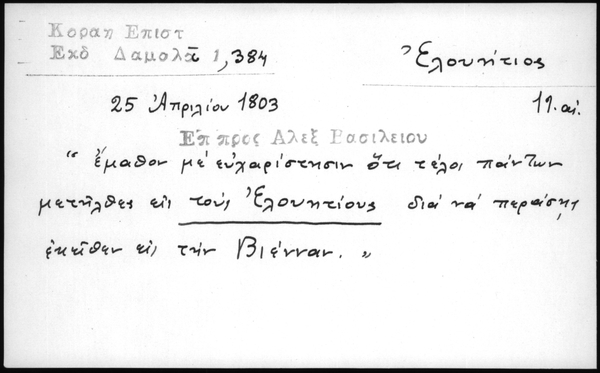 Κοραη Επιστ
Εκδ Δαμαλᾶ 1,384
Ἐλουήτιος
25 Ἀπριλίου 1803
19. αἰ.
Επ προς Αλεξ Βασιλειου
"ἔμαθον μέ εὐχαρίστησιν ὅτι τέλος πάντων
μετῆλθες εἰς τούς Ἐλουητίους διά νά περάσῃς
ἐκεῖθεν εἰς τήν Βιένναν."